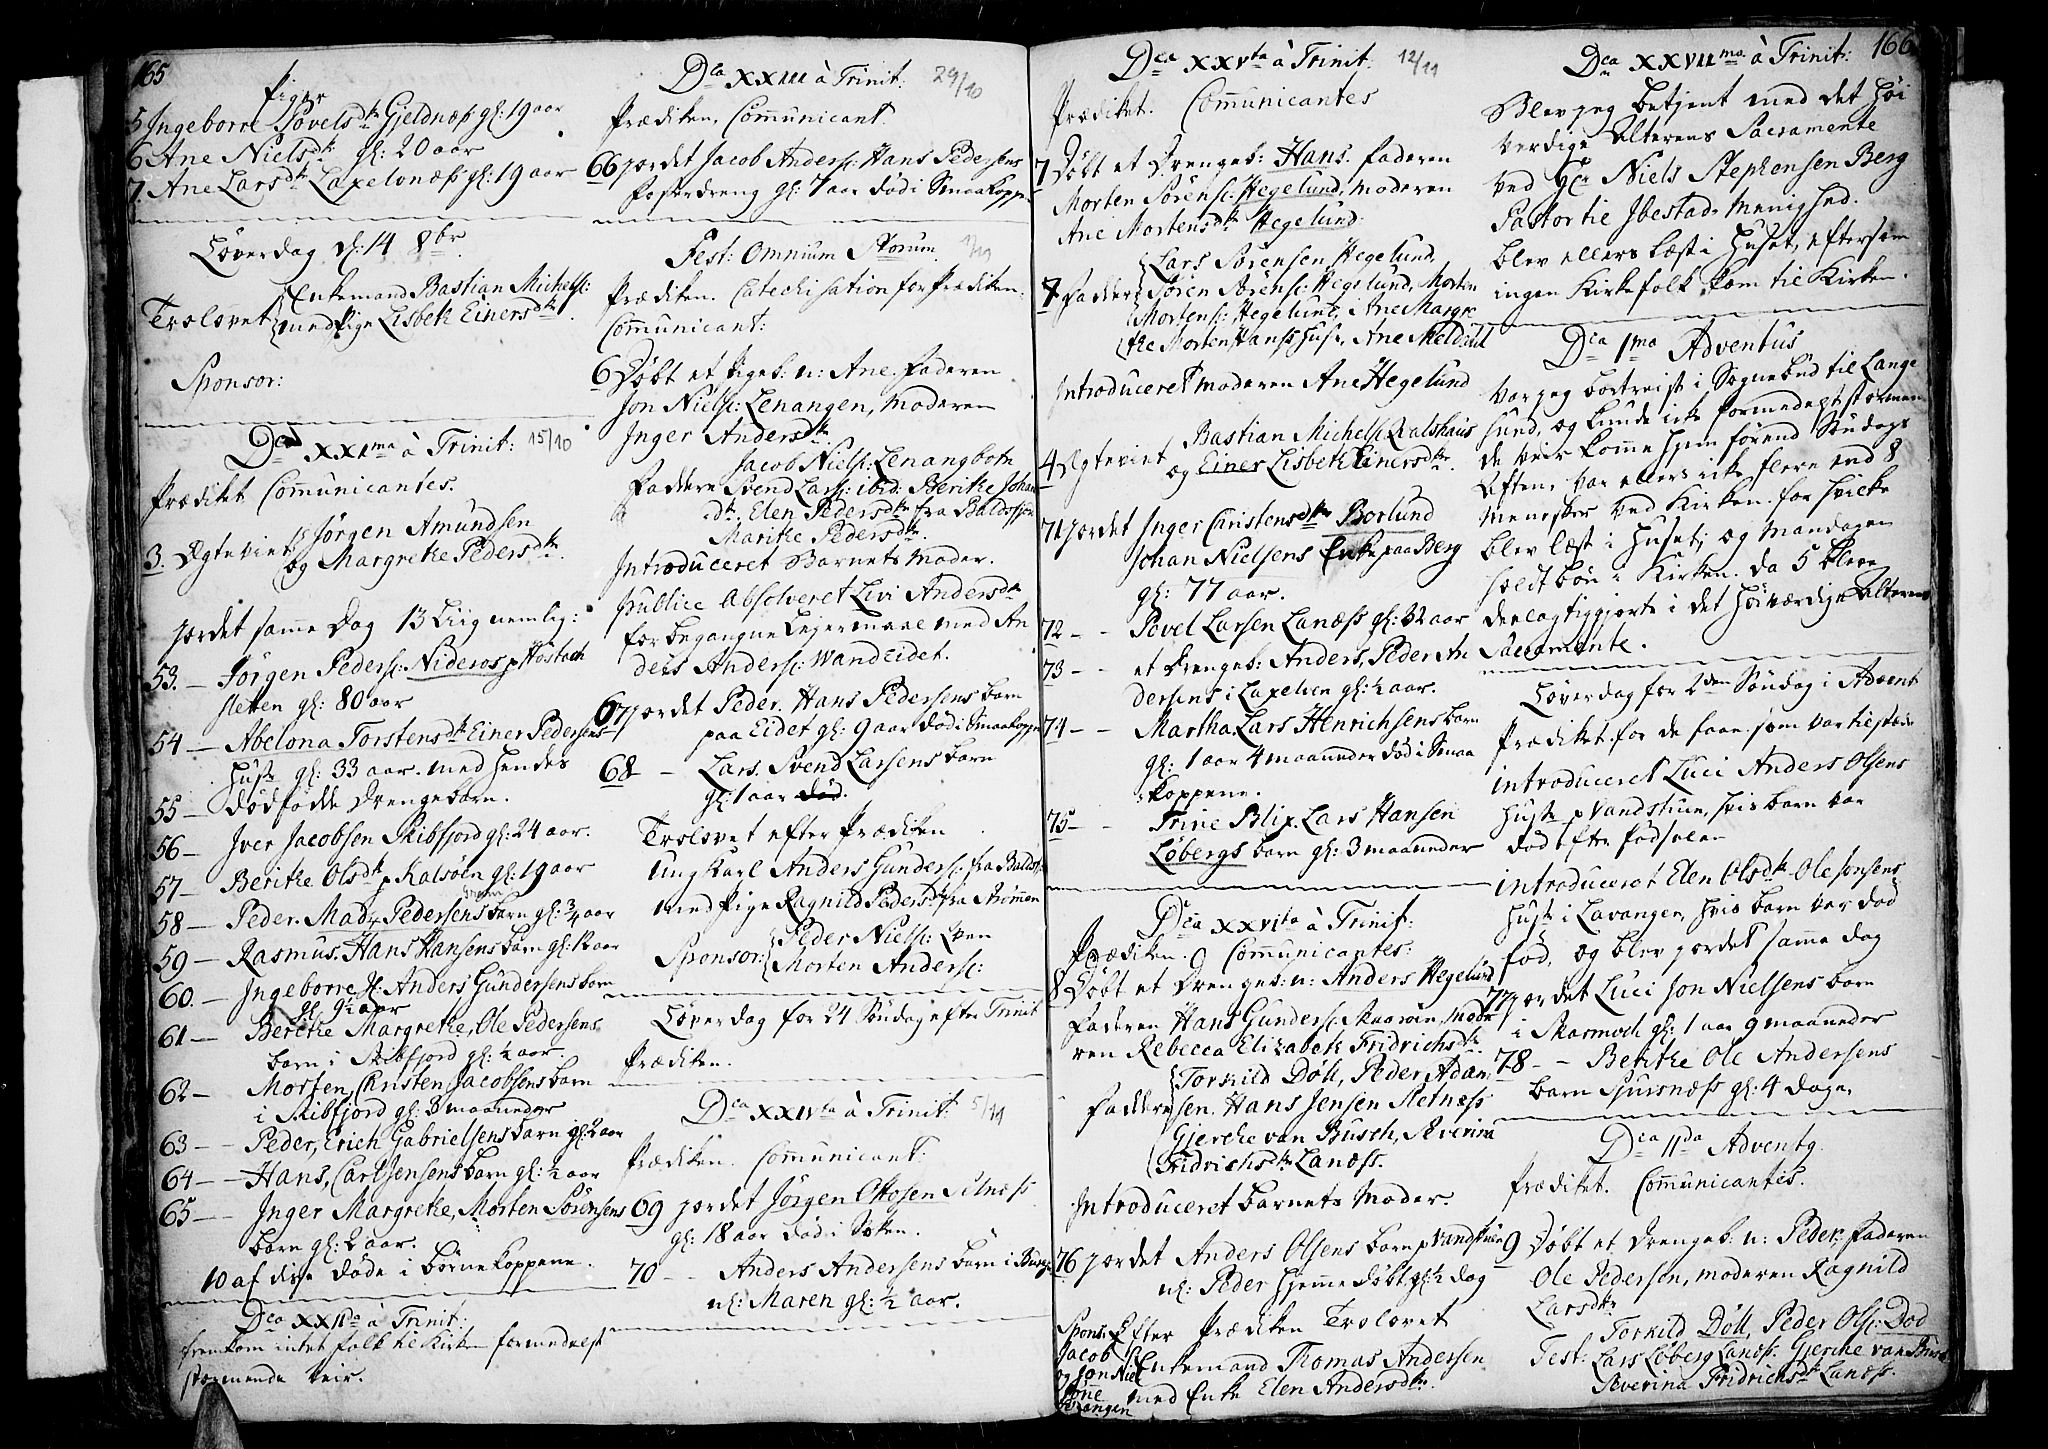 165
Piger
5 Ingeborre Povelsdtr Gjeldnæs gl: 19 aar
6 Ane Nielsdtr gl: 20 aar
7. Ane Larsdtr Laxelvnæss gl: 19 aar
Løverdag d: 14 8br.
Enkemand Bastian Michelsc:
Trolovet med Pige Lisbeth Einersdtr.
Sponsor:
Dca XXIma à Trinit: 15/10
Prædiket Communicantes.
Jørgen Amundsen
3. Ægteviet og Margrethe Pedersdtr.
Jordet samme Dag 13 Liig nemlig:
53. — Jørgen Pedersc: Nideros p
sletten gl: 80 aar
54 — Abelona Torstensdtr Einer Pedersens
Hustr gl: 33 aar. med hendes
55 — dødfødde Drengebarn.
56 — Iver Jacobsen Skibfjord gl: 24 aar.
57 — Berithe Olsdtr p Kalsøen gl: 19 aar
58 — Peder. Mads Pedersens barn gl: 3/4 aar
59 — Rasmus. Hans Hansens barn gl: aar
60. — Ingeborre Anders Gundersens barn
gl: 9 1/2 aar
61 — Berethe Margrethe, Ole Pedersens
barn i Skibfjord gl: 1/2 aar.
62 — Morten, Christen Jacobsens barn
i Skibfjord gl: 3 maaneder
63 — Peder, Erich Gabrielsens barn gl: 2 aar
64 — Hans, Carl Jensens barn gl: 1/2 aar
65 — Inger Margrethe, Morten Sørensens
barn gl: 2 aar.
10 af disse døde i Børnekoppene.
Dca XXIIda à Trinit:
fremkom intet folk til Kirken formedelst
stormende Veir.
Dca XXIII à Trinit: 29/10
Prædiken. Communicant
66 Jordet Jacob Andersc: Hans Pedersens
Fosterdreng gl: 7 aar død i Smaakopper
Fest: Omnium Storum. 1/11
Prædiken. Catechisation for Prædiken.
Communicant:
6 Døbt et Pigeb: n: Ane. Faderen
Jon Nielsc: Lenangen, Moderen
Inger Andersdtr.
Jacob Nielsc: Lenangbotn
Faddere Svend Larsc: ibid: Berithe Johan
dtr. Elen Pedersdtr fra Baldsfjor
Marithe Pedersdtr.
Introduceret Barnets Moder.
Publice Absolveret Livi Andersdtr
for begangne Lejermaal med An
ders Andersc: Wandeidet.
67 Jordet Peder. Hans Pedersens barn
paa Eidet gl: 9 aar død i Smaakopper
68 — Lars. Svend Larsens barn
gl: 1 aar død.
Trolovet efter Prædiken
Ung Karl Anders Gundersc: fra Baldsf.
med Pige Ragnild Pedersdtr fra Strømmen
Peder Nielsc: Even
Sponsor: Morten Andersc:
Løverdag for 24 Søndag efter Trinit
Prædiken.
Dca XXIVta à Trinit: 5/11
Prædiken. Communicant:
69 Jordet Jørgen Ottosen Selnæss
gl: 18 aar død i Søen.
70 — Anders Andersens barn i
nl: Maren gl: 1/2 aar.
Dca XXVta à Trinit: 12/11
Prædiket. Communicantes
7 Døbt et Drengeb: Hans. Faderen
Morten Sørensc: Hegelund, Moderen
Ane Mortensdtr Hegelund.
Lars Sørensen Hegelund,
7 Faddere Søren Sørensc: Hegelund, Morten
Mortensc: Hegelund, Ane Margre
the Morten Hanss Hustr, Ane Meldahl
Introduceret Moderen Ane Hegelund
Bastian Michelsc: Qvalshaus
4 Ægteviet og Einer Lisbeth Einersdtr.
71 Jordet Inger Christensdtr Borlund
Johan Nielsens Enke paa Berg
gl: 77 aar.
72 — Povel Larsen Lanæss gl: 32 aar
73 — et Drengeb: Anders, Peder An
dersens i Laxelven gl: 1/2 aar.
74 — Martha Lars Henrichsens barn
gl: 1 aar 4 maaneder død i Smaa
koppene.
75 — Trine Blix. Lars Hansen
Løbergs barn gl: 3 maaneder
Dca XXVIta à Trinit:
Prædiken. 9 Communicantes:
8 Døbt et Drengeb: n: Anders Hegelund
Faderen Hans Gundersc: Skarøen, Mode
ren Rebecca Elizabeth Fridrichsdtr
Torkild Döll, Peder Adam
Faddere sen. Hans Jensen Sletnæss
Gjerthe van Busch, Severina
Fridrichsdtr Lanæss.
Introduceret barnets Moder.
76 Jordet Anders Olsens barn p Vandstuen
nl: Peder hjemmedøbt gl: 1/2 Dag
Efter Prædiken Trolovet
Enkemand Thomas Andersen
med Enke Elen Andersdtr.
Spons:
Jacob
og Jon Niel
sønne
Lenangen
166
Dca XXVIIma à Trinit:
Blev jeg betjent med det Høi
verdige Alterens Sacramente
ved Hr Niels Stephensen Berg
Pastor til Ibestads Menighed.
blev ellers læst i Huset, eftersom
ingen Kirkefolk kom til Kirken.
Dca 1ma Adventus
Var jeg bortreist i Sognebud til Lange
sund, og kunde ikke formedelst stormen
de Veir komme hjem førend Søndags
Aften, var ellers ikke flere end 8
Menesker ved Kirken for hvilke
blev læst i Huset, og Mandagen
holdt bøn i Kirken. da 5 bleve
deelagtiggjorte i det Høiværdige Alterens
Sacramente.
Løverdag for 2den Søndag i Advent
Prædiket for de faae som var tilstæde
introduceret Luci Anders Olsens
Hustr p Vandstuen, hvis barn var
død efter Fødselen
introduceret Elen Olsdtr Ole Jonsens
Hustr i Lavangen, hvis barn var død
fød, og blev jordet samme dag
77 Jordet Luci Jon Nielsens barn
i Skarmoch gl: 1 aar 9 maaneder
78 — Berithe Ole Andersens
barn Sjursnæss gl: 4 Dage.
Dca IIda Adventg.
Prædiket. Communicantes.
9 Døbt et Drengeb: n: Peder, Faderen
Ole Pedersen, Moderen Ragnild
Larsdtr
Torkild Döll, Peder Olsc: Dod
Test: Lars Løberg Lanæss. Gjerthe van Busch
Severina Fridrichsdtr Lanæss.